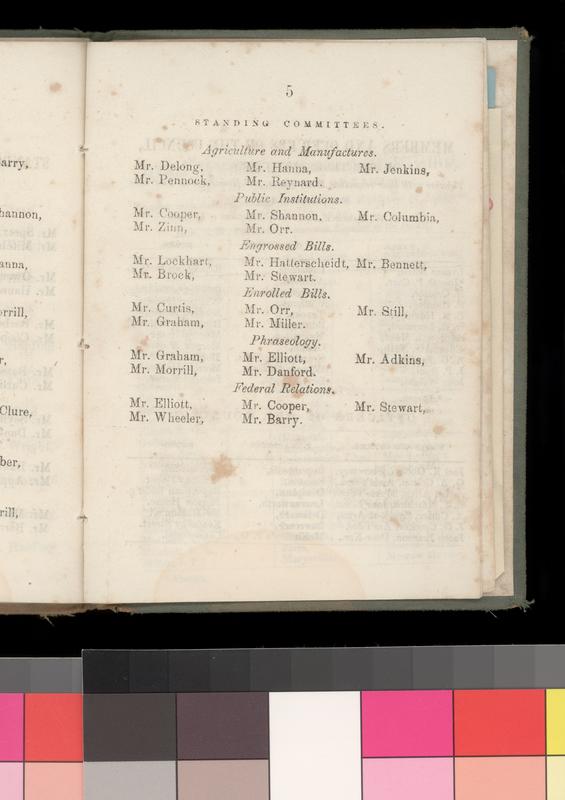 5
STANDING COMMITTEES.
Agriculture and Manufactures.
Mr. Delong, Mr. Hanna, Mr. Jenkins,
Mr. Pennock, Mr. Reynard.
Public Institutions.
Mr. Cooper, Mr. Shannon, Mr. Columbia,
Mr. Zinn, Mr. Orr.
Engrossed Bills.
Mr. Lockhart, Mr. Hatterscheidt, Mr. Bennett,
Mr. Brock, Mr. Stewart.
Enrolled Bills.
Mr. Curtis, Mr. Orr, Mr. Still,
Mr. Graham, Mr. Miller.
Phraseology.
Mr. Graham, Mr. Elliott, Mr. Adkins,
Mr. Morrill, Mr. Danford.
Federal Relations.
Mr. Elliott, Mr. Cooper, Mr. Stewart,
Mr. Wheeler, Mr. Barry.